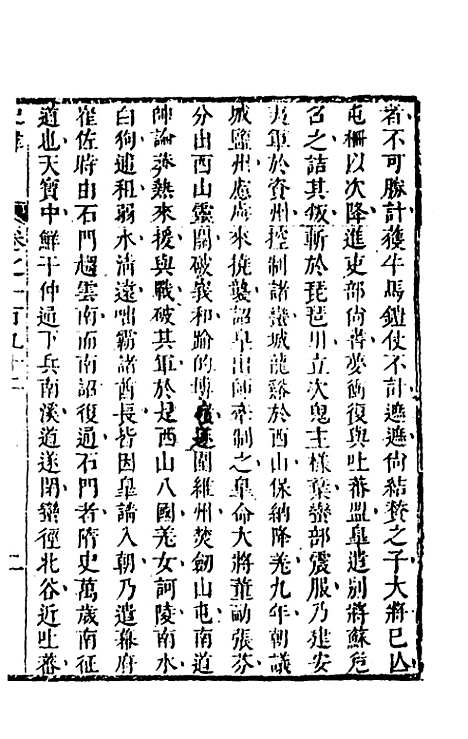 者不可勝計獲牛馬鎧仗不計遮遮尚結贊之子大將已亾
屯柵以次降進吏部尚書夢衝復與吐蕃盟皐遣別將蘇峞
召之詰其叛斬於琵琶川立次鬼主樣棄蠻部震服乃建安
夷軍於資州控制諸蠻城龍谿於西山保納降羌九年朝議
城鹽州慮虜來撓襲詔皐出師牽制之皐命大將董勔張芬
分出西山靈關破峩和踰的博嶺遂圍維州焚劒山屯南道
帥論莽熱來援與戰破其軍於是西山八國羌女訶陵南水
白狗逋租弱水淸遠咄霸諸酋長皆因皐請入朝乃遣幕府
崔佐時由石門趨雲南而南詔復通石門者隋史萬歲南征
道也天寶中鮮于仲通下兵南溪道遂閉蠻徑北谷近吐蕃
卷之一百九十二
二